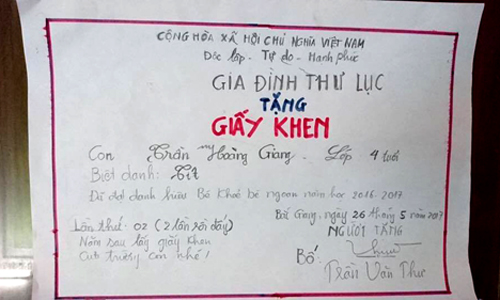 CỘNG HÒA XÃ HỘI CHỦ NGHĨA VIỆT NAM
Độc lập - Tự do - Hạnh phúc
GIA ĐÌNH THƯ LỤC
TẶNG
GIẤY KHEN
Con Trần Hoàng Giang - Lớp 4 tuổi
Biệt danh: Tít
Đã đạt danh hiệu Bé Khoẻ bé ngoan năm học 2016-2017
Lần thứ: 02 (2 lần rồi đấy)
Năm sau lấy giấy khen
của trường con nhé!
Bắc Giang, ngày 26 tháng 5 năm 2017
NGƯỜI TẶNG
Bố
Trần Văn Thư